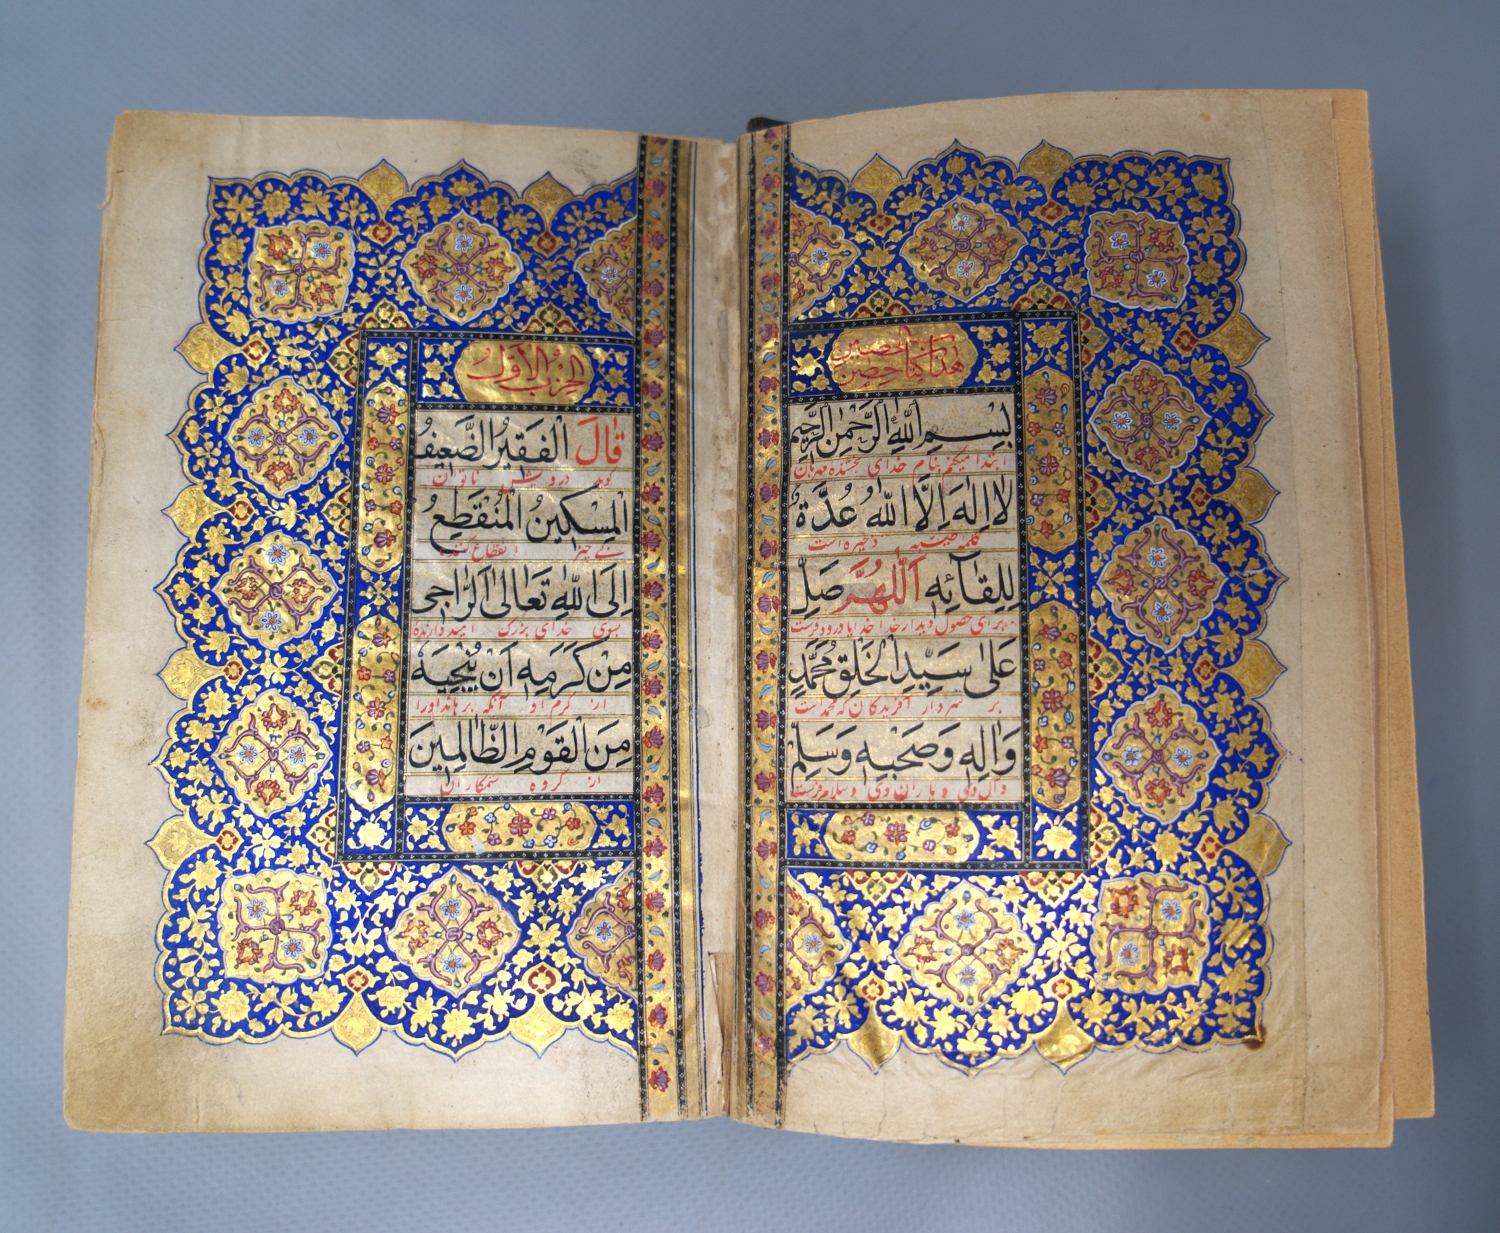 هذا كتاب حصن حصين
بِسْمِ اللّٰهِ الرَّحْمٰنِ الرَّحِيْمِ
ابتدا میکنم بنام خدای بخشنده مهربان
لَا اِلٰهَ اِلَّا اللّٰهُ عُدَّةٌ
کلمه طیبه ذخیره است
لِلِقَآئِهٖ اَللّٰهُمَّ صَلِّ
برای حصول دیدار خدا خدایا درود فرست
عَلٰى سَيِّدِ الْخَلْقِ مُحَمَّدٍ
بر سردار آفریدگان که محمد است
وَاٰلِهٖ وَصَحْبِهٖ وَسَلِّمْ
وآل وی و یاران وی و سلام فرست
الحزب الاَوَّل
قَالَ الْفَقِيْرُ الضَّعِيْفُ
گوید درویش ناتوان
الْمِسْكِيْنُ الْمُنْقَطِعُ
بی چیز انقطاع کننده
اِلَى اللّٰهِ تَعَالٰى الرَّاجِى
بسوی خدای بزرگ امید دارنده
مِنْ كَرَمِهٖ اَنْ يُنْجِيَهٗ
از کرم او آنکه برهاند اورا
مِنَ الْقَوْمِ الظَّالِمِيْنَ
از گروه ستمکاران